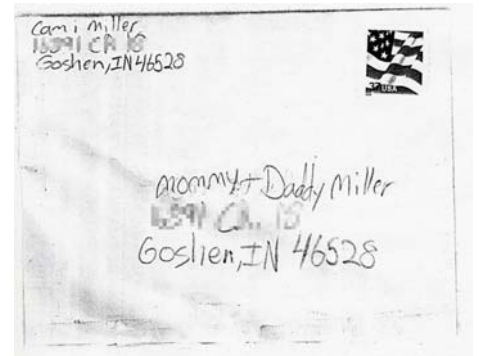 Cami Miller
Goshen, IN 46528
37 USA
Mommy + Daddy Miller
Goshen, IN 46528